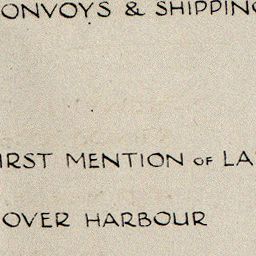 ONVOYS & SHIPPING
IRST MENTION OF LA
OVER HARBOUR